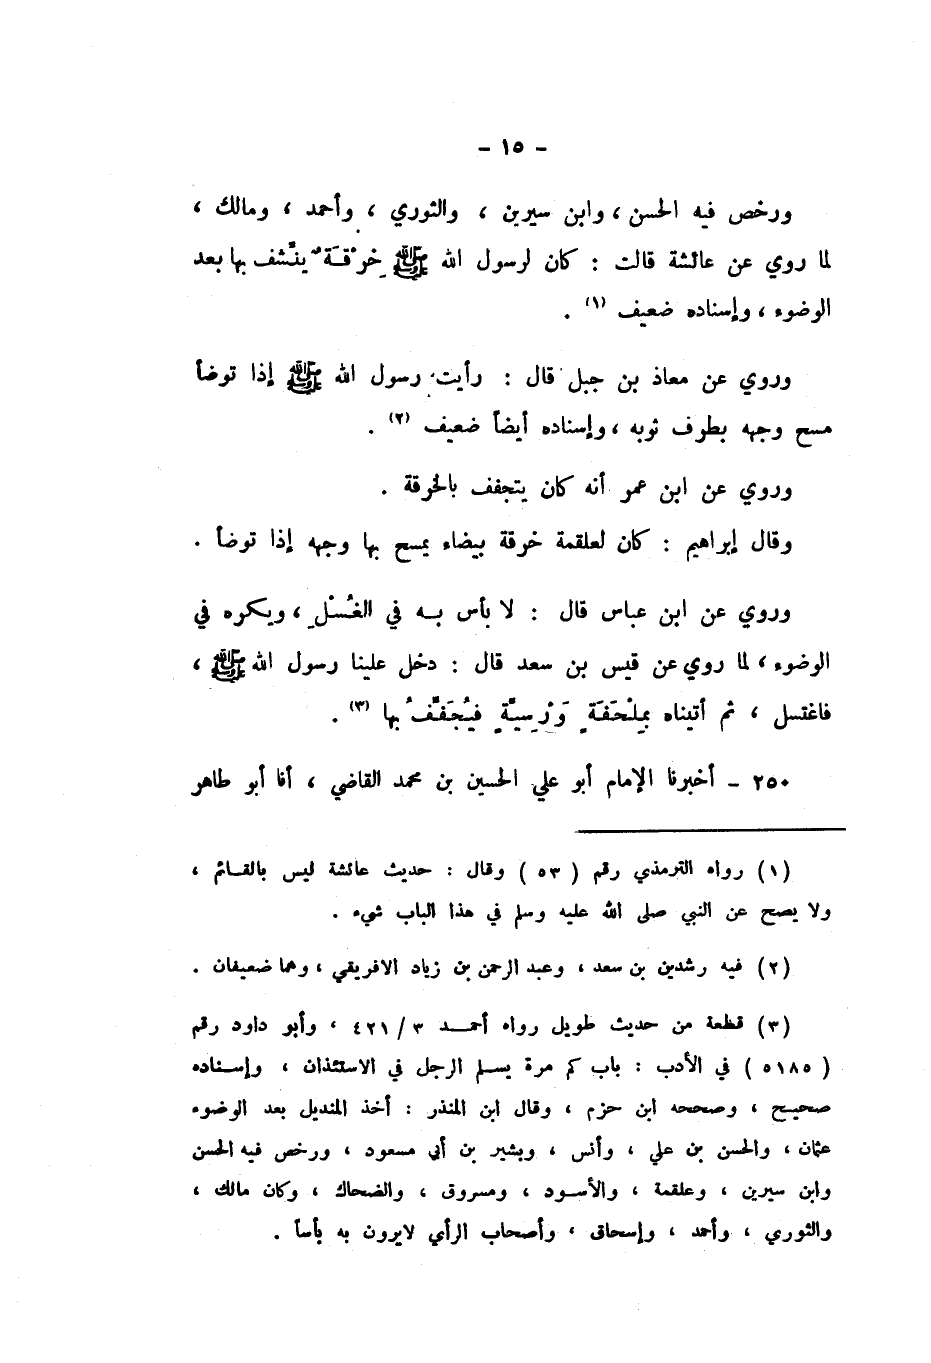 - ١٥ -
ورخص فيه الحسن ، وابن سيرين ، والثوري ، وأحمد ، ومالك ،
لما روي عن عائشة قالت : كان لرسول الله ﷺ خِرْقَةٌ ينَشَّف بها بعد
الوضوء ، وإسناده ضعيف (١) .
وروي عن معاذ بن جبل قال : رأيتُ رسول الله ﷺ إذا توضأ
مسح وجهه بطرف ثوبه ، وإسناده أيضاً ضعيف (٢) .
وروي عن ابن عمر أنه كان يتجفف بالخرقة .
وقال إبراهيم : كان لعلقمة خرقة بيضاء يمسح بها وجهه إذا توضأ .
وروي عن ابن عباس قال : لا بأس بـه في الغُسْلِ ، ويكره في
الوضوء ، لما روي عن قيس بن سعد قال : دخل علينا رسول الله ﷺ ،
فاغتسل ، ثم أتيناه بمِلْحَفَةٍ وَرْسِيَّةٍ فيُجَفَّفُ بها (٣) .
٢٥٠ - أخبرنا الإمام أبو علي الحسين بن محمد القاضي ، أنا أبو طاهر
(١) رواه الترمذي رقم ( ٥٣ ) وقال : حديث عائشة ليس بالقـائم ،
ولا يصح عن النبي صلى الله عليه وسلم في هذا الباب شيء .
(٢) فيه رشدين بن سعد ، وعبد الرحمن بن زياد الافريقي ، وهما ضعيفان .
(٣) قطعة من حديث طويل رواه أحمـــد ٣ / ٤٢١ ، وأبو داود رقم
( ٥١٨٥ ) في الأدب : باب كم مرة يسـلم الرجل في الاستئذان ، وإسـناده
صحيـح ، وصححه ابن حزم ، وقال ابن المنذر : أخذ المنديل بعد الوضوء
عثمان ، والحسن بن علي ، وأنس ، وبشير بن أبي مسعود ، ورخص فيه الحسن
وابن سيرين ، وعلقمة ، والأسـود ، ومسروق ، والضحاك ، وكان مالك ،
والثوري ، وأحمد ، وإسحاق ، وأصحاب الرأي لايرون به بأساً .